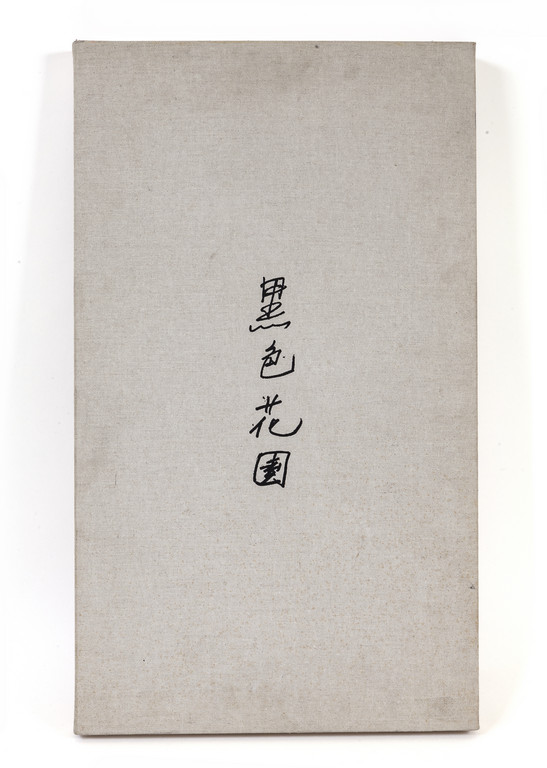 黑色花園